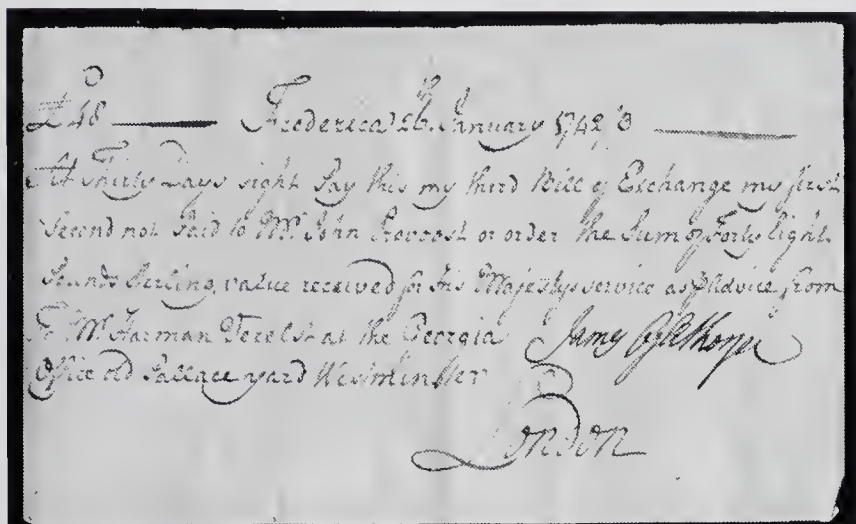 £48 Frederica 26th January 1742/3
At Thirty Days sight Pay this my third Bill of Exchange my first
Second not Paid to Mr. John Provost or order the Sum of Forty Eight
Pounds Sterling, value received for his Majestys service as p Advice from
To Mr. Harman Verelst at the Georgia James Oglethorpe
Office old Pallace yard Westminster
London